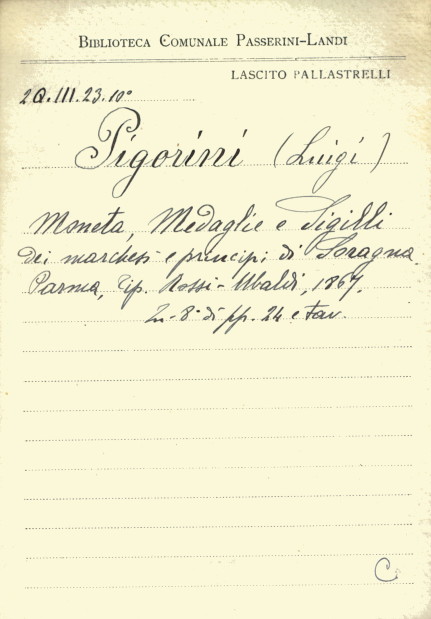 BIBLIOTECA COMUNALE PASSERINI-LANDI
LASCITO PALLASTRELLI
2Q.III.23.10°
Pigorini (Luigi)
Moneta, Medaglie e Sigilli
dei marchesi e principi di Soragna.
Parma, Tip. Rossi-Ubaldi, 1867.
In-8° di pp. 24 e tav.
C